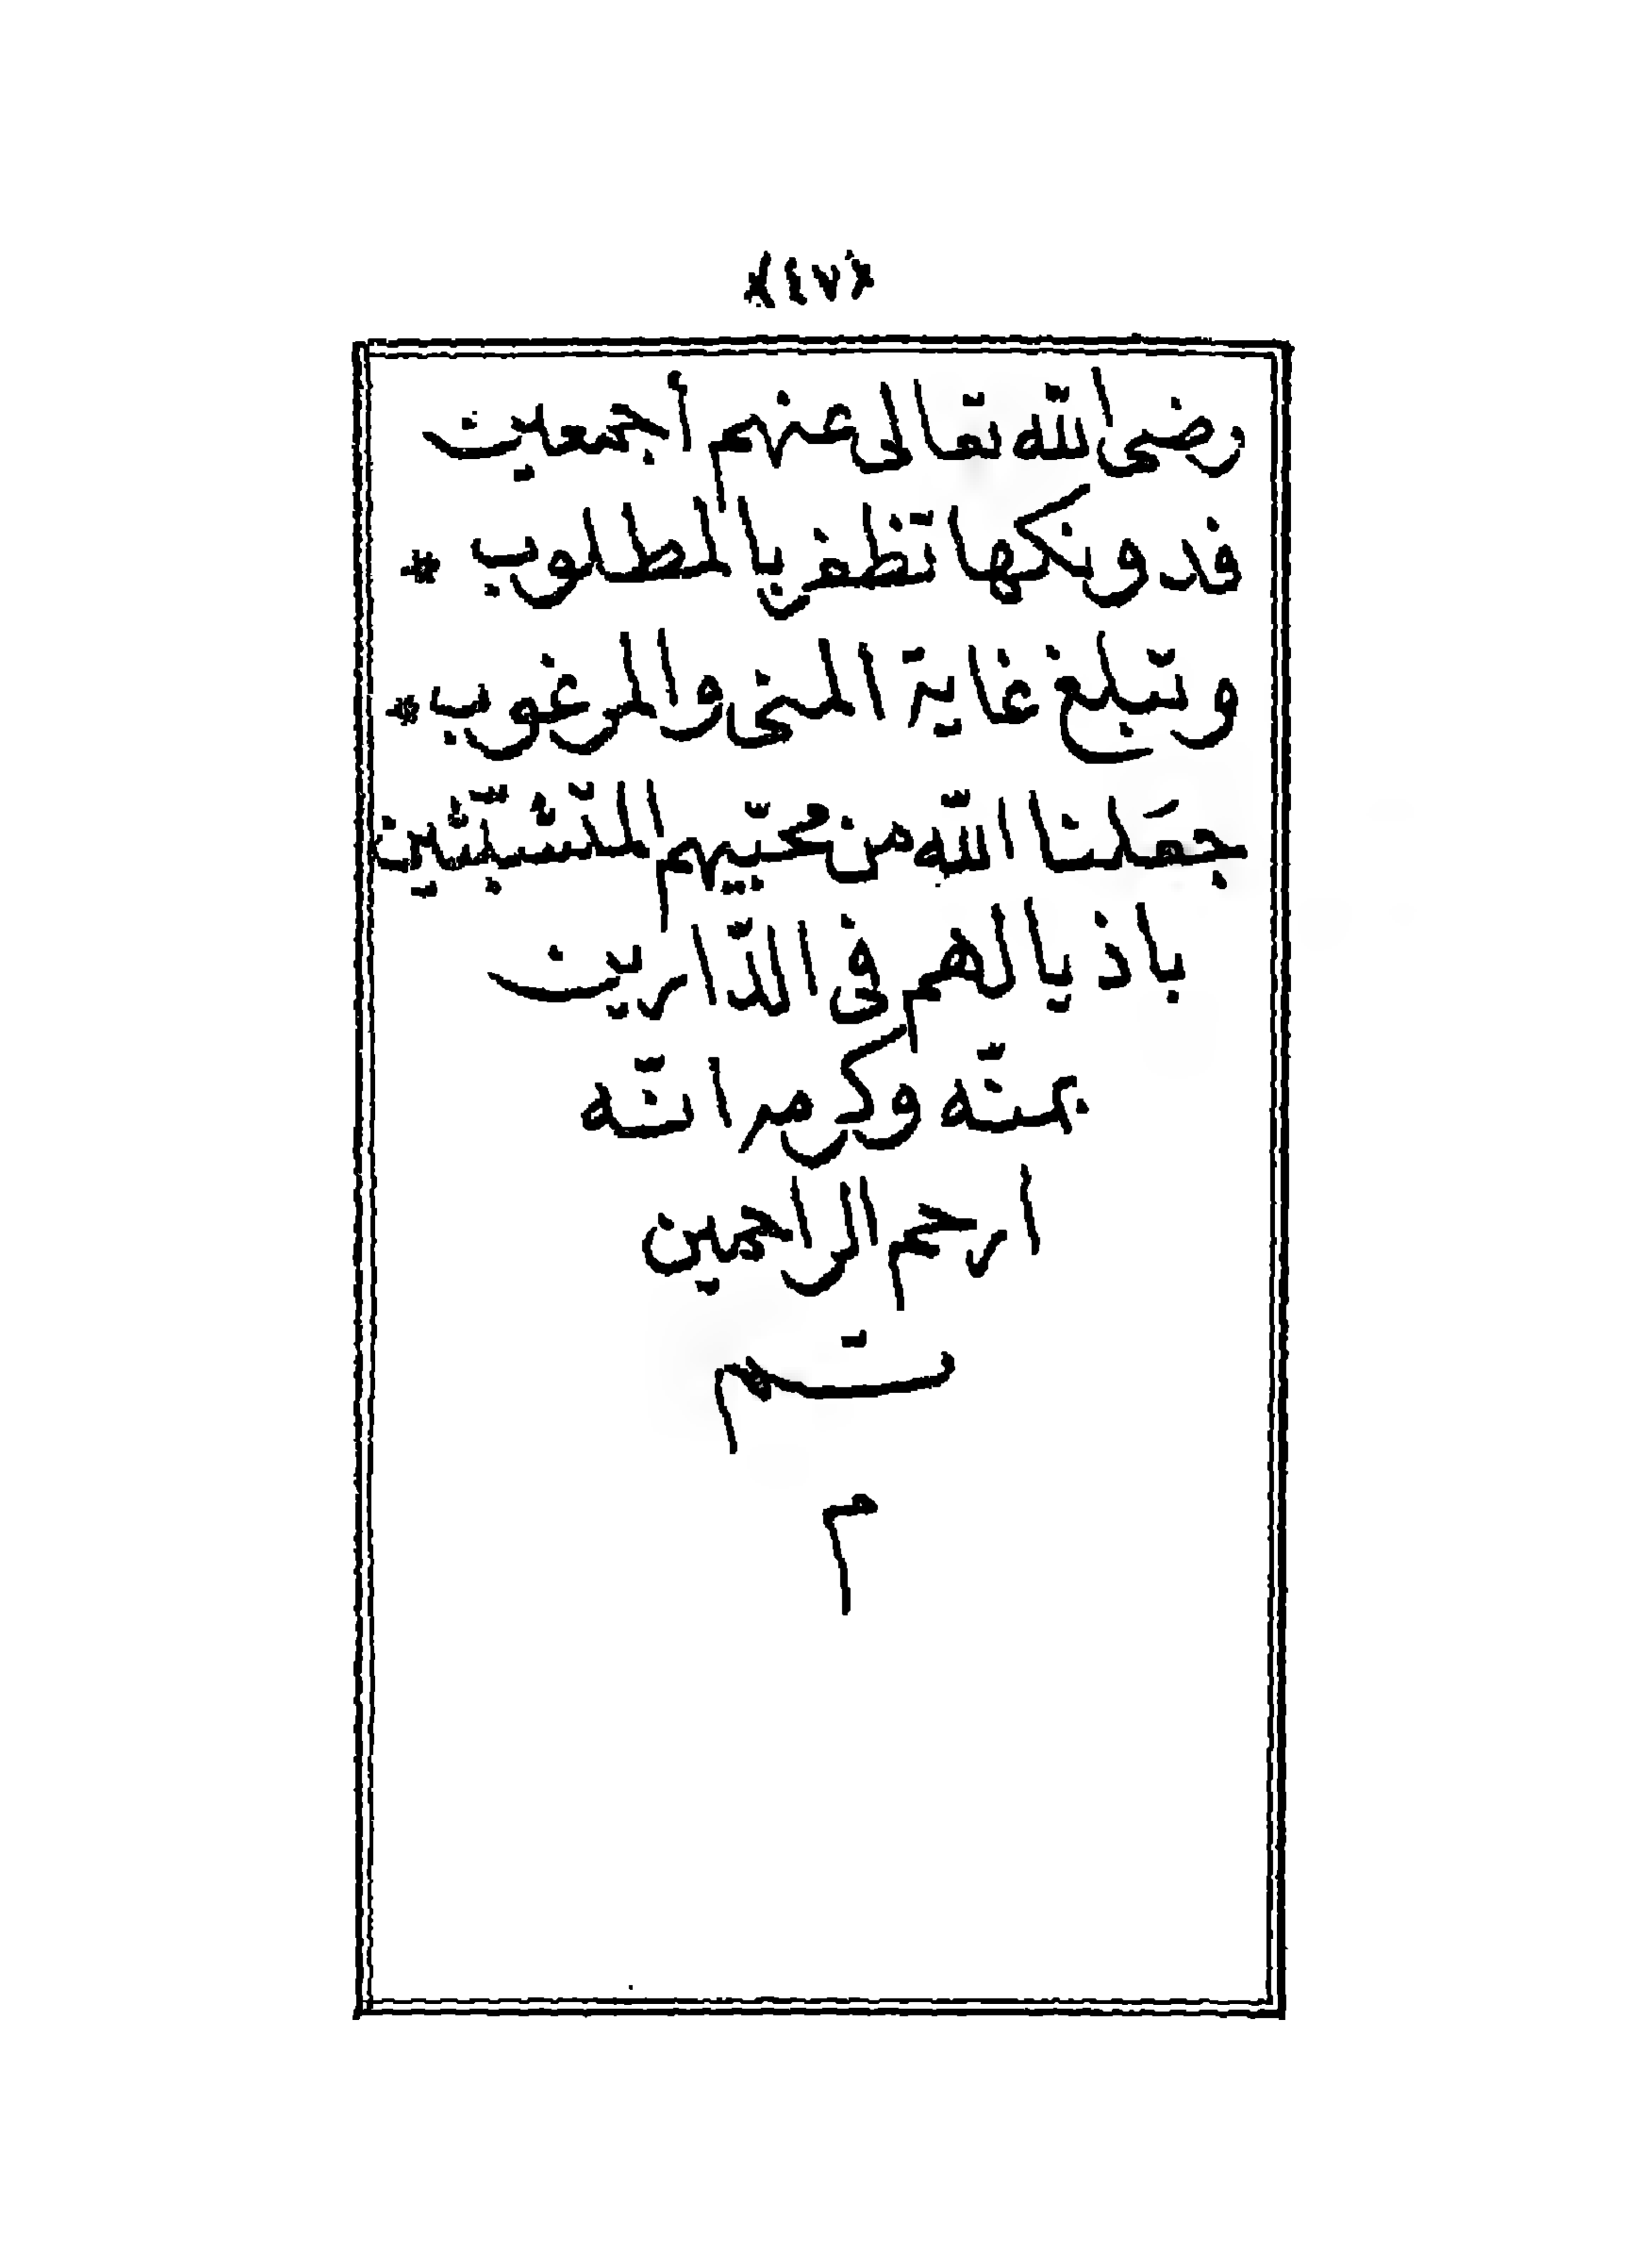 ﴿٤٧﴾
رضى الله تعالى عنهم أجمعين
فدونكها تظفر بالمطلوب *
وتبلغ غاية المنى والمرغوب *
جعَلنا الله من محبّيهم المتّشبّثين
باذيالهم فى الدّارين
بمنّه وكرمه انّه
ارحم الراحمين
تم
م